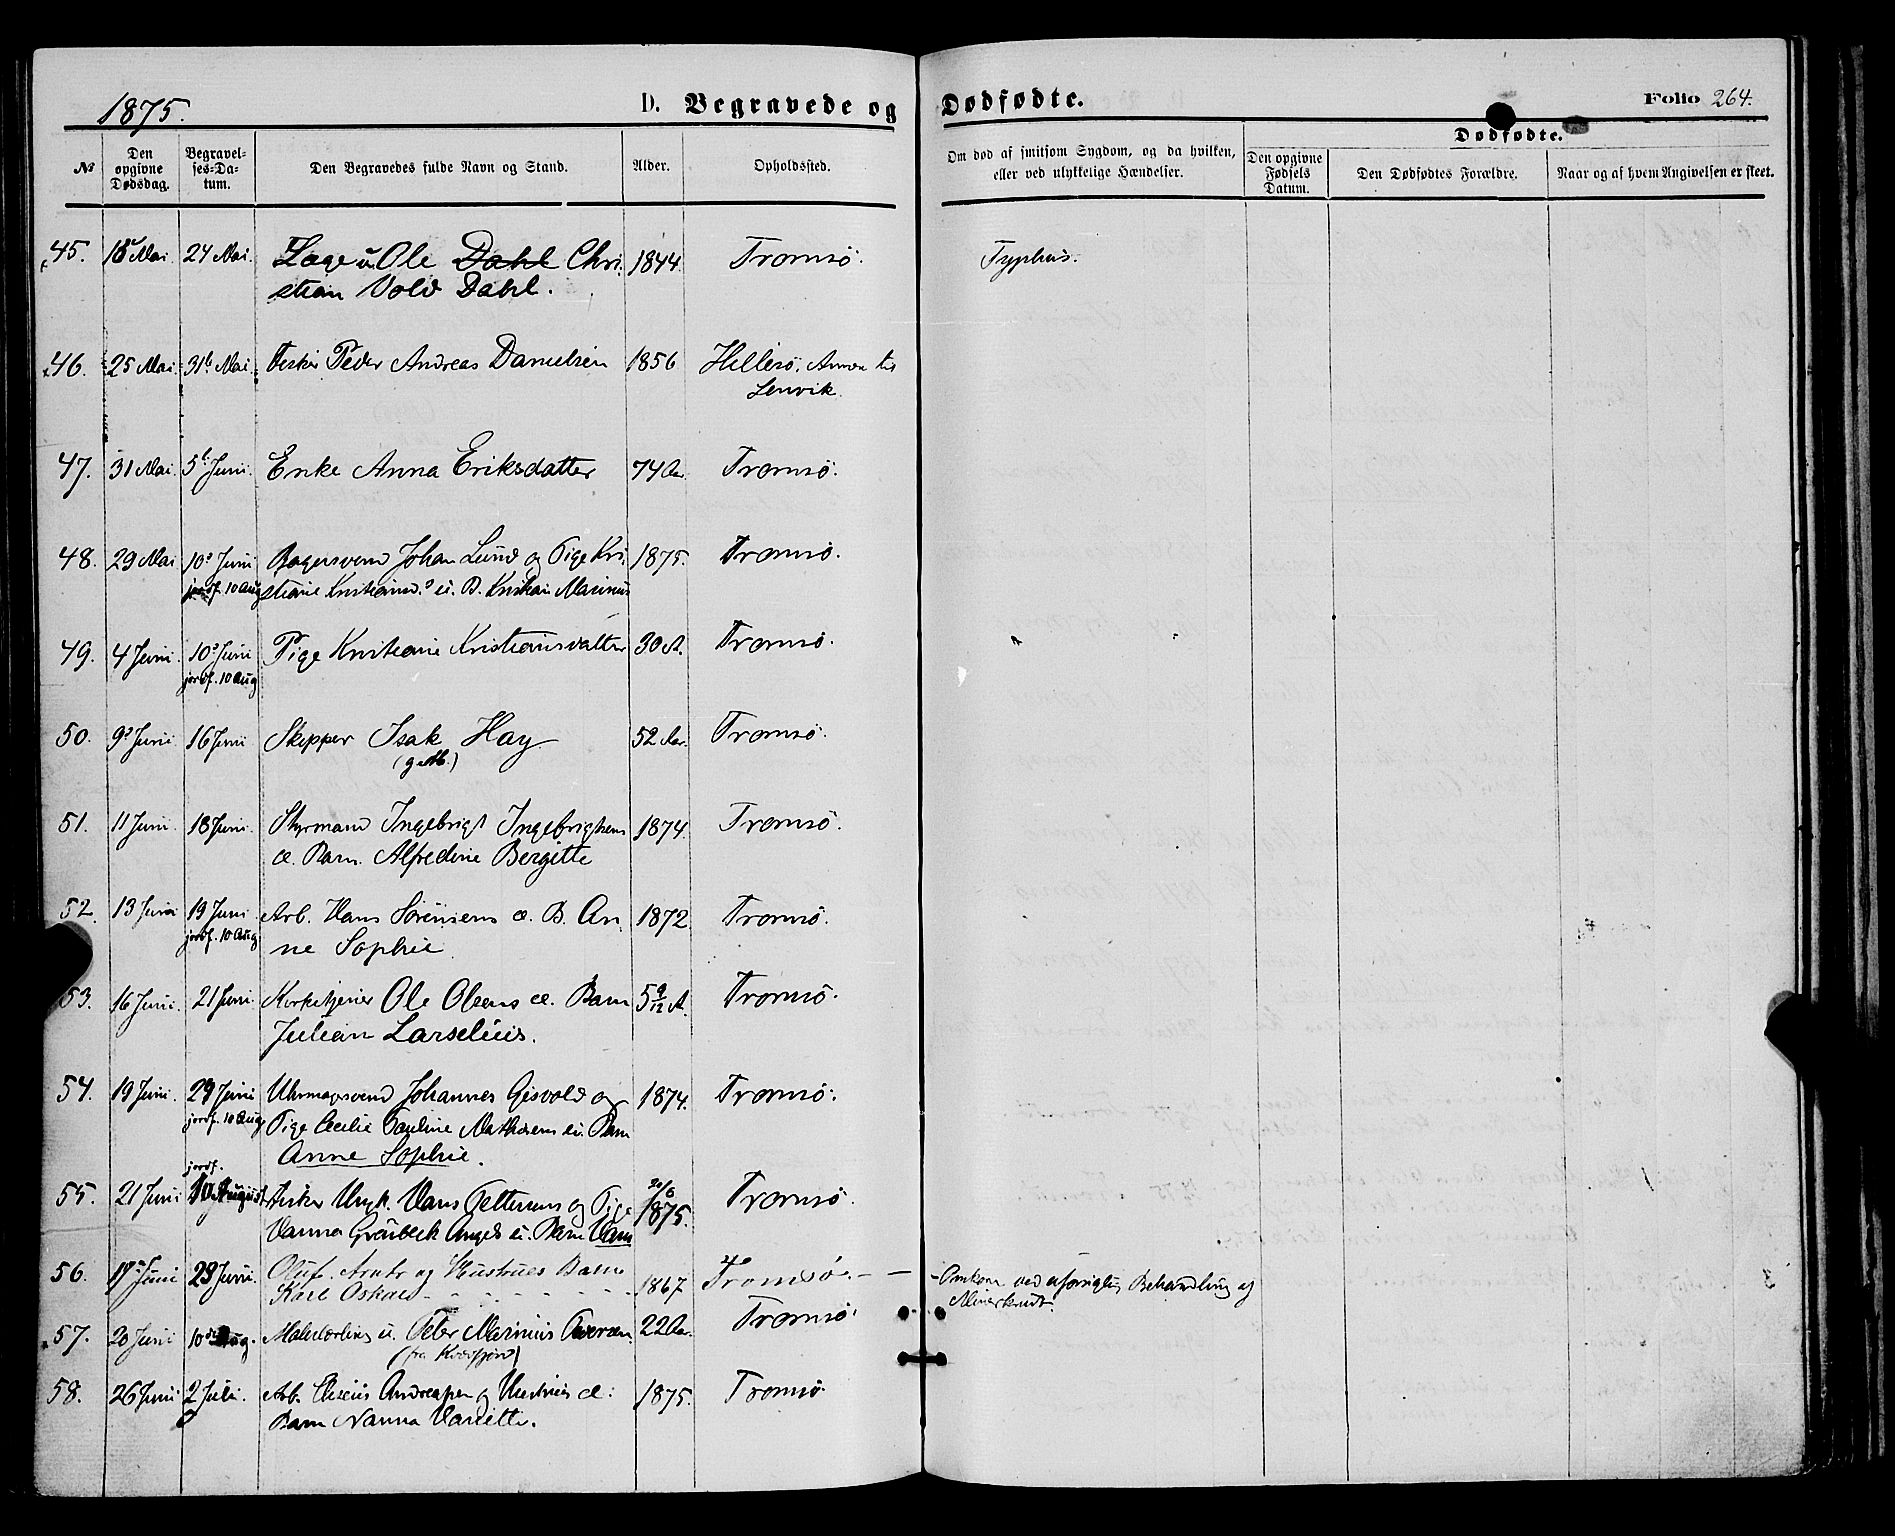 1875.
D. Begravede og Dødfødte.
Folio 264.
Dødfødte.
№
Den opgivne Dødsdag.
Begravelses-Datum.
Den Begravedes fulde Navn og Stand.
Alder.
Opholdssted.
Om død af smitsom Sygdom, og da hvilken, eller ved ulykkelige Hændelser.
Den opgivne Fødsels Datum.
Den Dødfødtes Forældre.
Naar og af hvem Angivelsen er skeet.
45. 18 Mai 24 Mai. Læge u. Ole Dahl Chri- 1844. Tromsö. Typhus.
stian Vold Dahl.
46. 25 Mai 31 Mai. Fisker Peder Andreas Danielsen 1856 Hillesö, Annex til
Lenvik.
47. 31 Mai 5 Juni. Enke Anna Eriksdatter 74 Aar Tromsö.
48. 29 Mai 10 Juni Bagersvend Johan Lund og Pige Kri- 1875. Tromsö.
jordf. 10 Aug stiane Kristiansd. u. B. Kristian Marinus
49. 4 Juni. 10 Juni Pige Kristiane Kristiansdatter 30 A. Tromsö.
jordf. 10 Aug
50. 9 Juni 16 Juni Skipper Isak Hay 52 Aar. Tromsö.
51. 11 Juni. 18 Juni. Styrmand Ingebrigt Ingebrigtsens 1874. Tromsö.
æ. Barn. Alfredine Bergitte
52. 13 Juni 19 Juni. Arb. Hans Sörensens æ. B. An- 1872 Tromsö.
jordf. 10 Aug ne Sophie.
53. 16 Juni. 21 Juni. Kirketjener Ole Olsens æ. Barn 5 9/12 A. Tromsö.
Julian Larselius.
54. 19 Juni. 29 Juni Uhrmagersvend Johannes Gisvold og 1874. Tromsö.
jordf. 10 Aug Pige Cecilie Pauline Mathisens u. Barn
Anne Sophie.
jordf.
55. 21 Juni 10 August Fisker Ungk. Hans Pettersens og Pige 1875. Tromsö.
Hanna Angels u. Barn Hans
56. 17 Juni 23 Juni. Oluf og Hustrues Barn 1867 Tromsö. - - - Omkom ved uforsigtig Behandling af
Karl Oskar Minerkrudt.
57. 20 Juni 10 Aug. u. Peter Marinius 22 Aar. Tromsö.
(fra Kvæfjord)
58. 26 Juni 2 Juli. Arb. Andreasen og Hustrues æ. 1875. Tromsö
Barn Nanna Hariette.